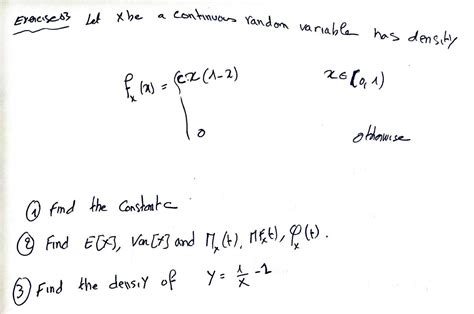 Exercise03 Let X be a continuous random variable has density
f_X(x) = { cx(1-x) x∈[0,1)
0 otherwise
① Find the Constant c
② Find E[X], Var[X] and M_X(t), MF_X(t), φ_X(t).
③ Find the density of Y = 1/X - 1